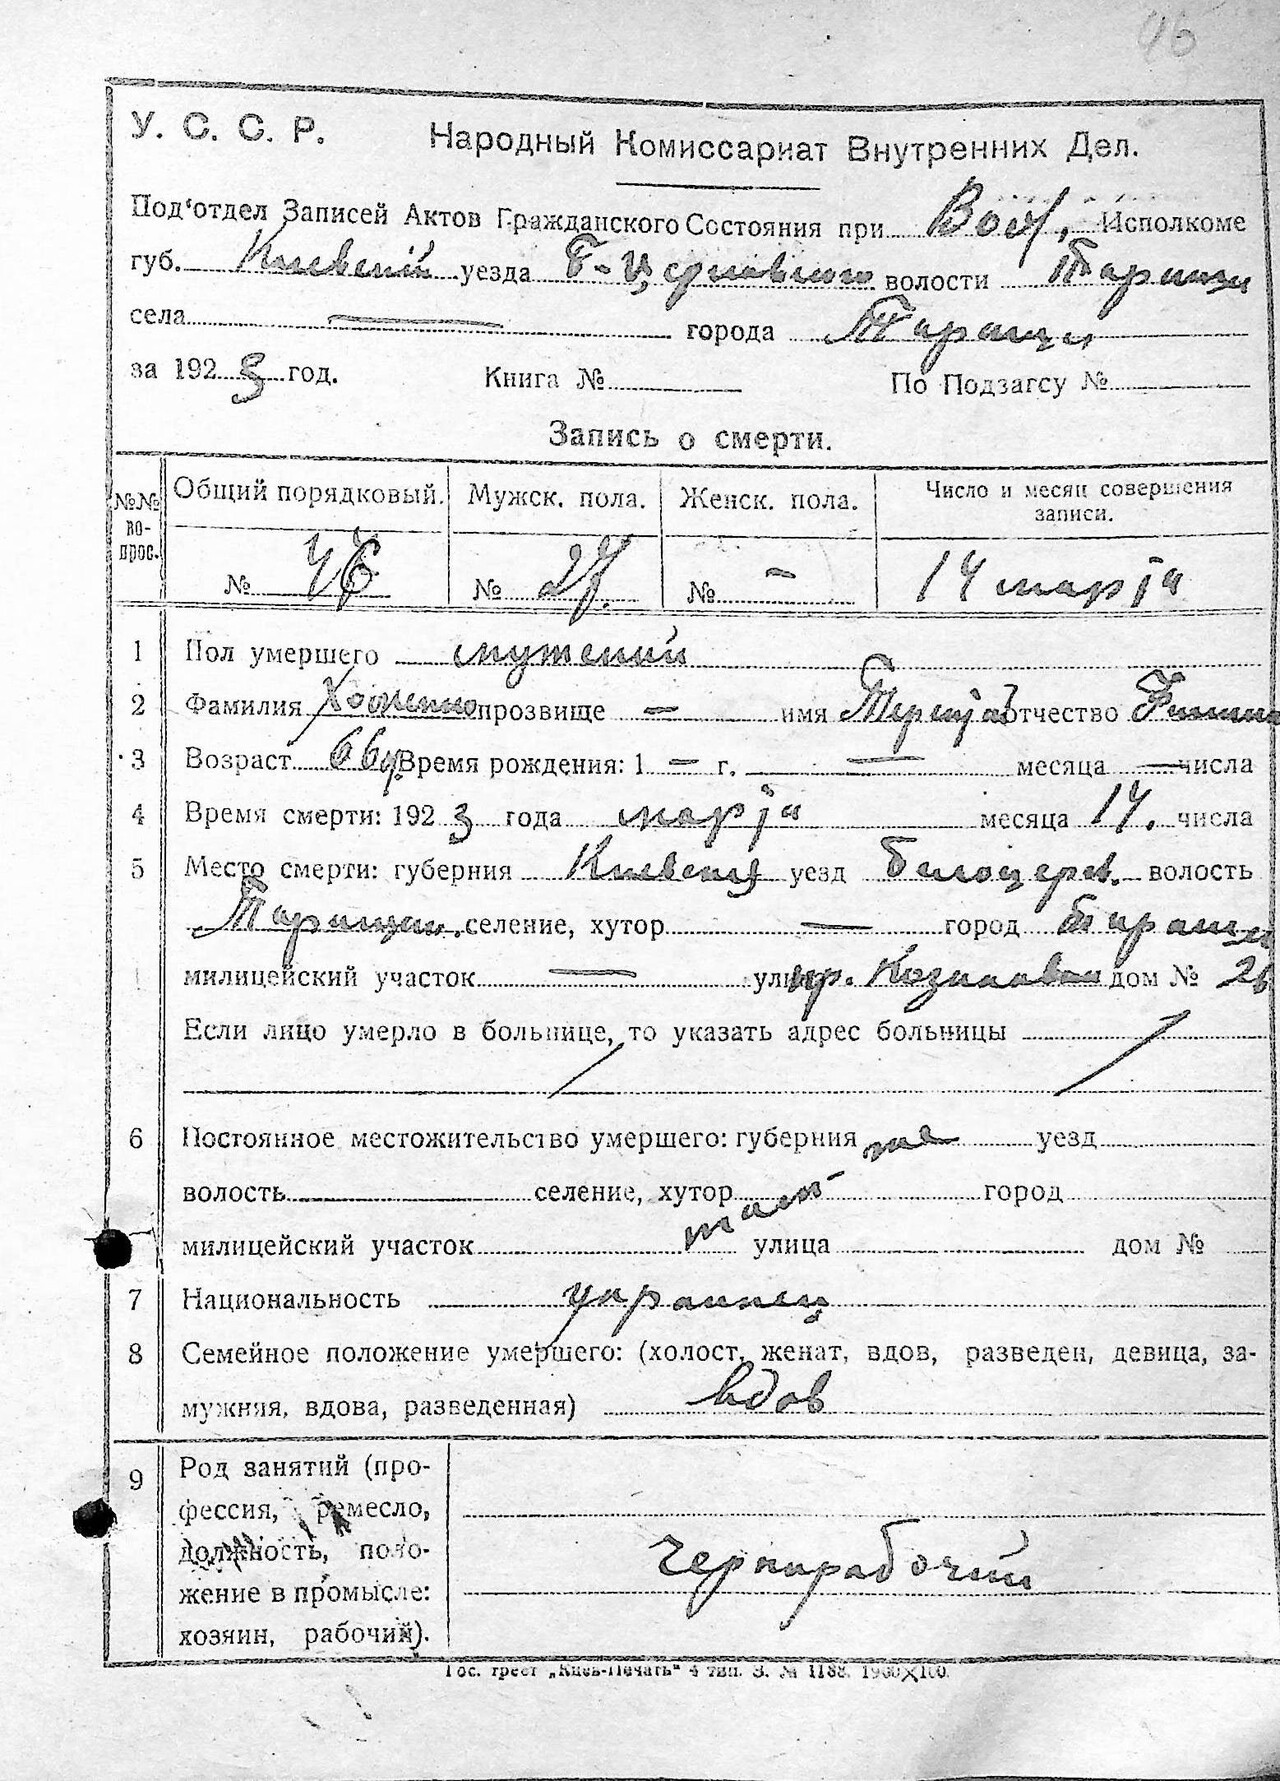 96
У. С. С. Р. Народный Комиссариат Внутренних Дел.
Под'отдел Записей Актов Гражданского Состояния при Вол. Исполкоме
губ. Киевской уезда Б-Церковского волости Таращи
села — города Таращи
за 1923 год. Книга № По Подзагсу №
Запись о смерти.
№№ вопрос. Общий порядковый. Мужск. пола. Женск. пола. Число и месяц совершения записи.
№ 46 № 27. № – 14 марта
1 Пол умершего мужеский
2 Фамилия прозвище — имя отчество
3 Возраст 66 г. Время рождения: 1 — г. — месяца — числа
4 Время смерти: 1923 года марта месяца 14. числа
5 Место смерти: губерния Киевская уезд Белоцерк. волость
Таращан. селение, хутор — город Тараща
милицейский участок — улица пр. дом № 26
Если лицо умерло в больнице, то указать адрес больницы
6 Постоянное местожительство умершего: губерния там уезд
волость селение, хутор город
милицейский участок улица дом №
7 Национальность украинец
8 Семейное положение умершего: (холост, женат, вдов, разведен, девица, за-
мужняя, вдова, разведенная) вдов
9 Род занятий (про-
фессия, ремесло,
должность, поло-
жение в промысле:
хозяин, рабочий).
чернорабочий
Гос. трест „Киев-Печать" 4 тип. З. № 1188. 1900×100.